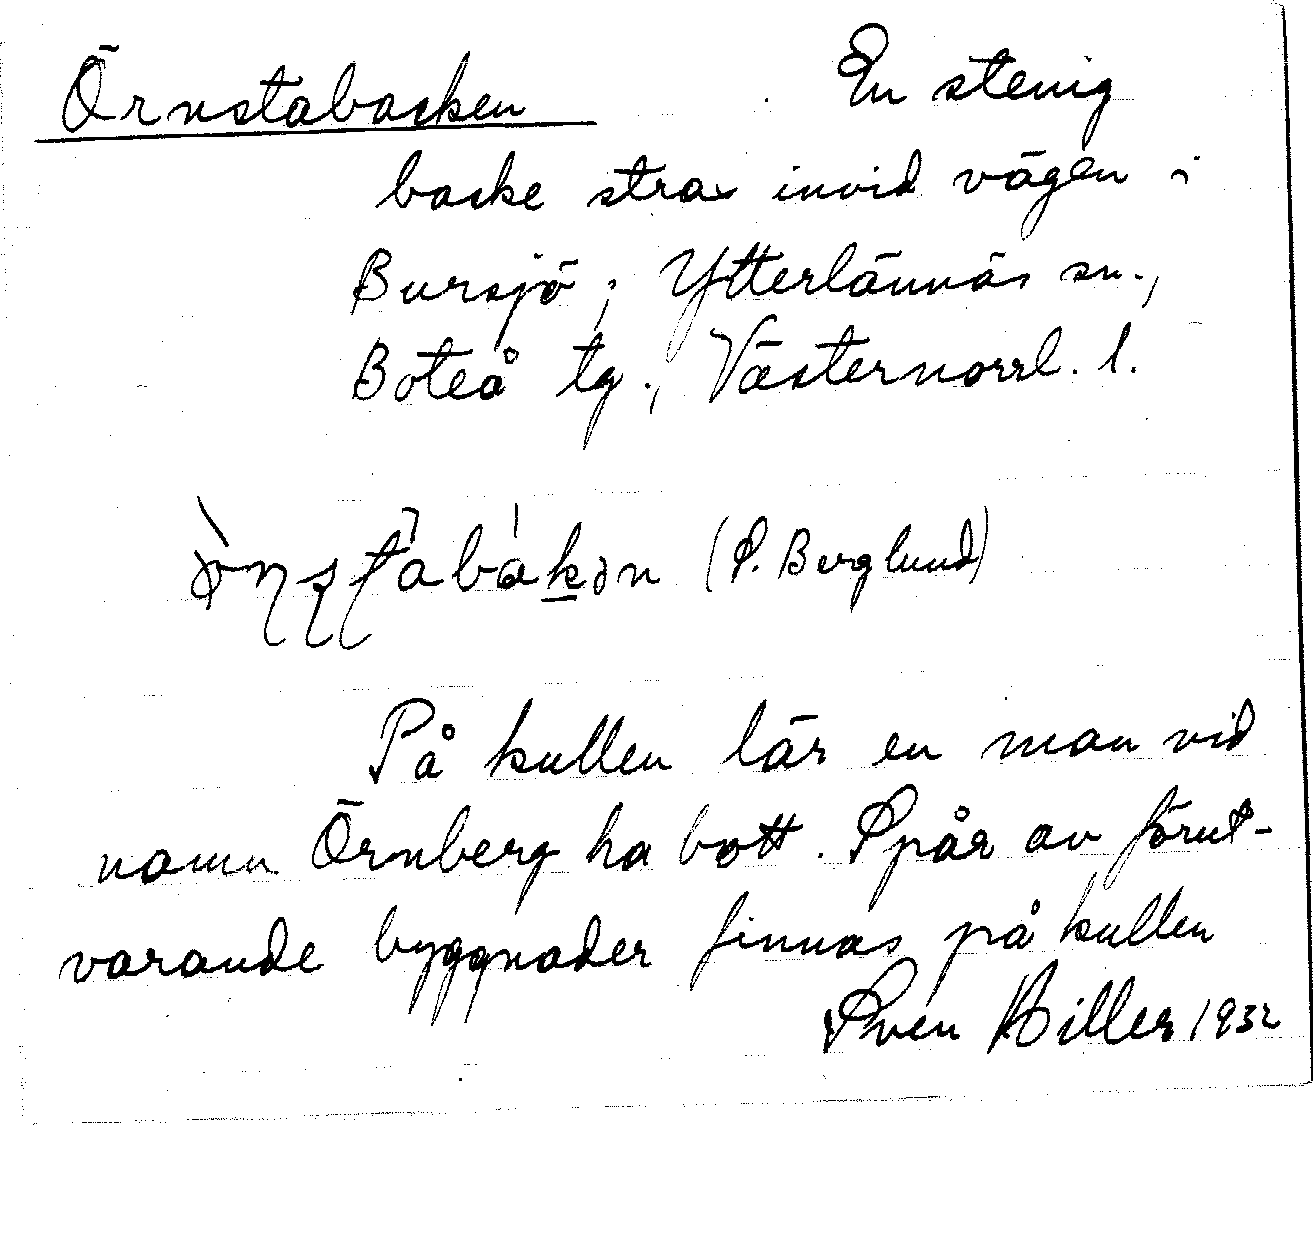 Örnstabacken En stenig
backe strax invid vägen i
Bursjö, Ytterlännäs sn.,
Boteå tg., Västernorrl. l.
(S. Berglund)
På kullen lär en man vid
namn Örnberg ha bott. Spår av förut-
varande byggnader finnas på kullen
Sven Hiller 1932